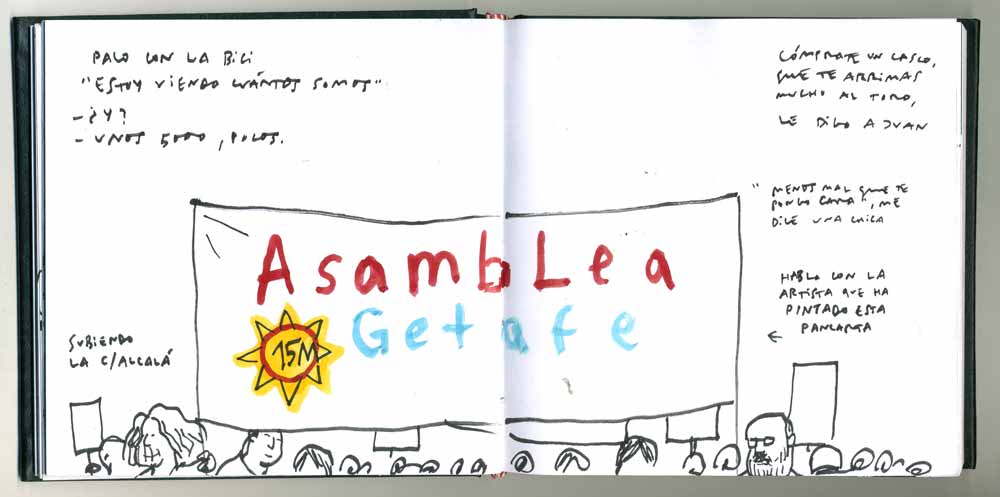 PACO CON LA BICI
"ESTOY VIENDO CUÁNTOS SOMOS"
- ¿Y?
- UNOS 5000, POCOS.
CÓMPRATE UN CASCO,
QUE TE ARRIMAS
MUCHO AL TORO,
LE DIGO A JUAN
"MENOS MAL QUE TE
PONGO CARA", ME
DICE UNA CHICA
HABLO CON LA
ARTISTA QUE HA
PINTADO ESTA
PANCARTA
←
AsambLea
Getafe
15M
SUBIENDO
LA C/ALCALÁ